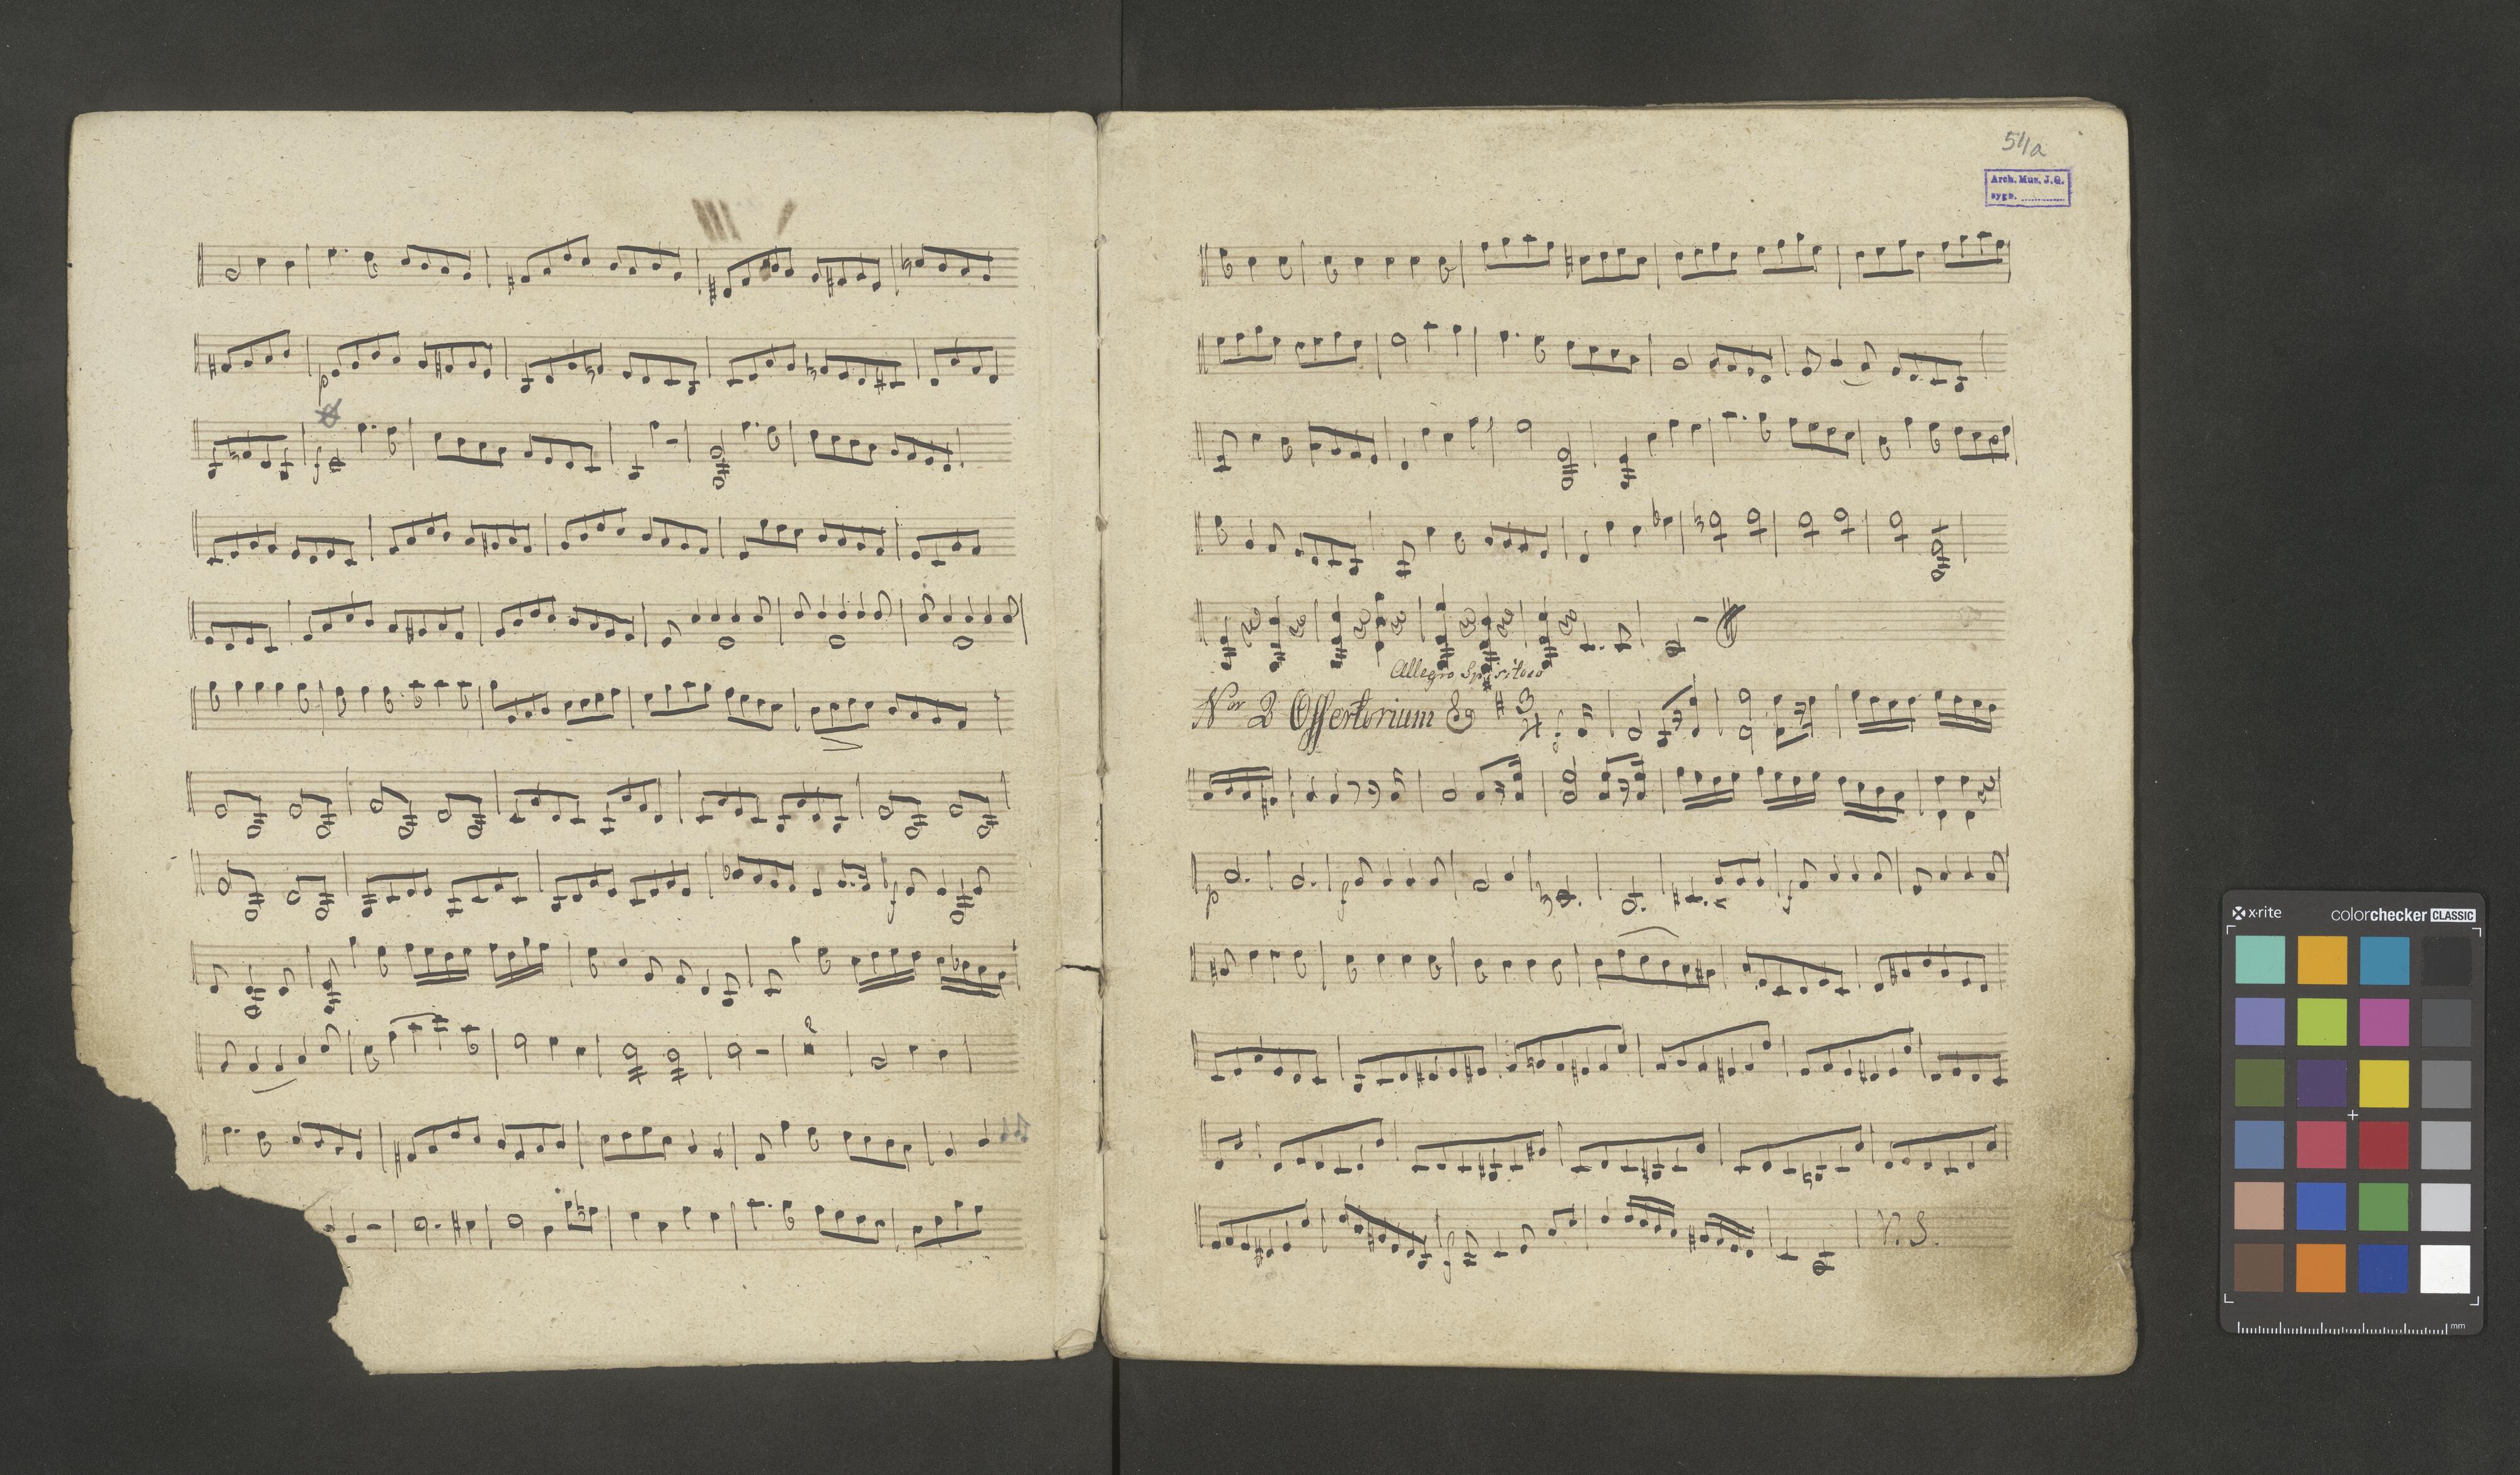 54a
Arch. Mus. J.G.
sygn. ............
Allegro Spiritoso
Nor 2 Offertorium
3
4
V. S.
x·rite
colorchecker CLASSIC
mm